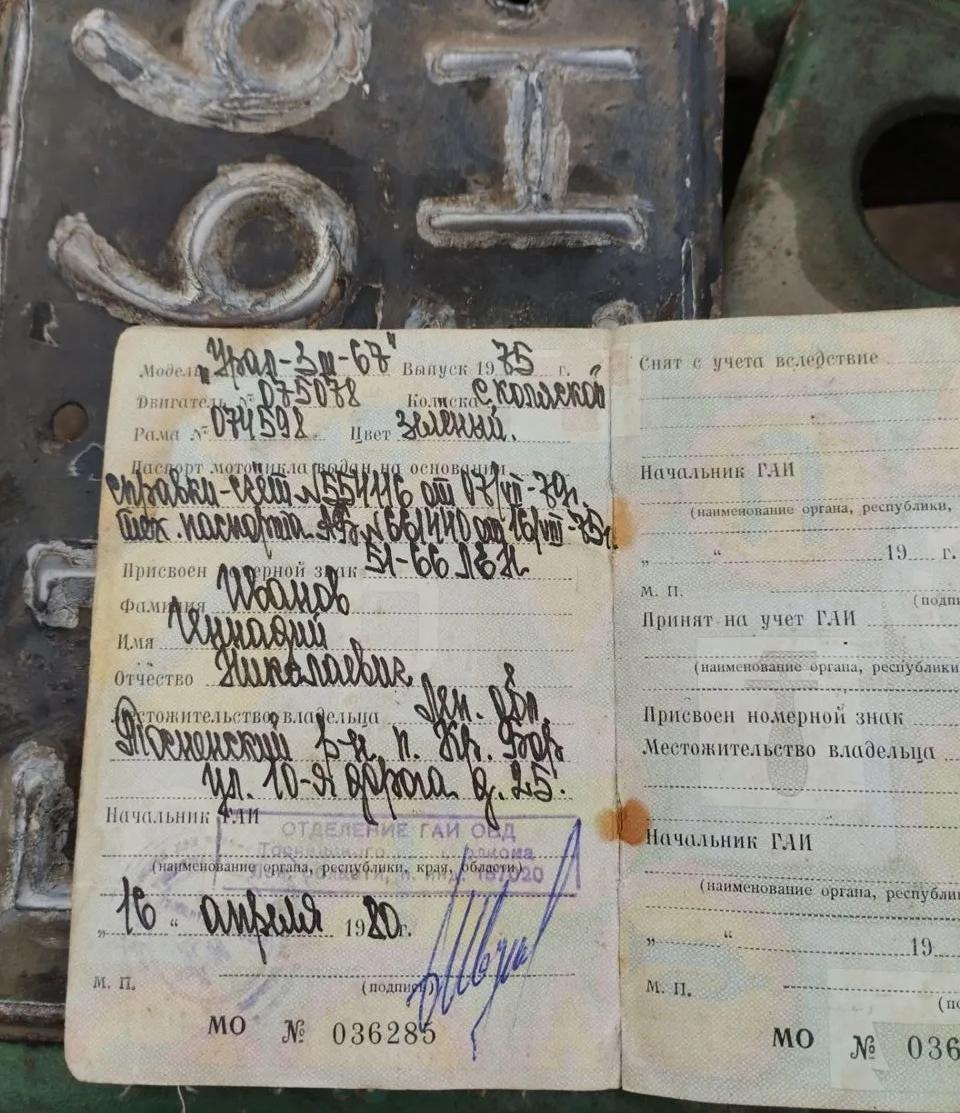 6 Н
6
Модель „Урал-3м-67" Выпуск 1975 г.
Двигатель № 075078 Коляска с коляской
Рама № 074598 Цвет зелёный.
Паспорт мотоцикла выдан на основании
справки-счёт №554116 от 07/VII-79г.
тех. паспорта АБ №661440 от 16/VIII-75г.
Присвоен номерной знак 51-66 ЛЕН
Фамилия Иванов
Имя
Отчество Николаевич
Местожительство владельца Лен. обл.
Тосненский р-н. п. Кр. Бор
ул. 10-я дорога д. 25.
Начальник ГАИ
ОТДЕЛЕНИЕ ГАИ ОВД
(наименование органа, республики, края, области)
187020
„16" апреля 1980г.
М. П. (подпись)
МО № 036285
Снят с учета вследствие
Начальник ГАИ
(наименование органа, республики,
„ " 19 г.
М. П.
Принят на учет ГАИ
(наименование органа, республики
Присвоен номерной знак
Местожительство владельца
Начальник ГАИ
(наименование органа, республи
„ " 19
М. П.
МО № 036